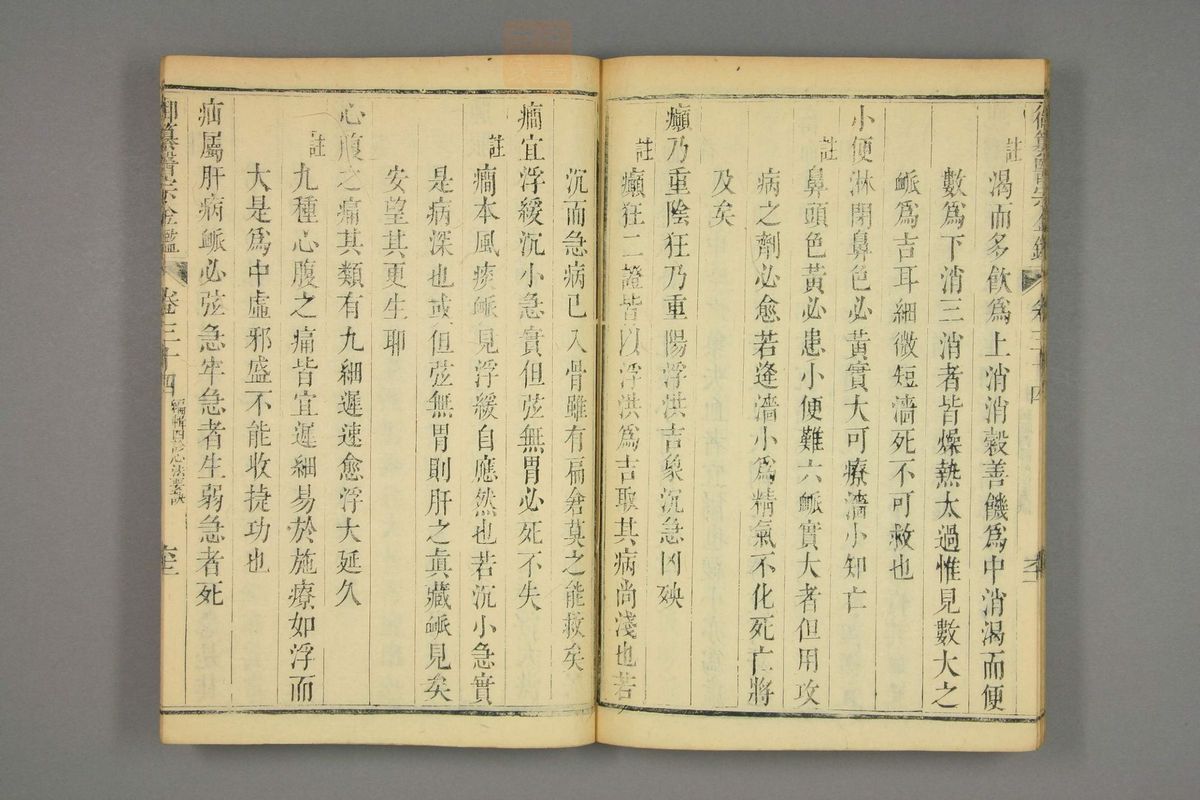 註渴而多飲爲上消消穀善饑爲中消渴而便
數爲下消三消者皆燥熱太過惟見數大之
衇爲吉耳細微短濇死不可救也
小便淋閉鼻色必黃實大可療濇小知亡
註鼻頭色黃必患小便難六衇實大者但用攻
病之劑必愈若逢濇小爲精氣不化死亡將
及矣
癲乃重陰狂乃重陽浮洪吉象沉急凶殃
註癲狂二證皆以浮洪爲吉取其病尚淺也若
沉而急病已入骨雖有扁倉莫之能救矣
癎宜浮緩沉小急實但弦無胃必死不失
註癎本風痰衇見浮緩自應然也若沉小急實
是病深也或但弦無胃則肝之眞藏衇見矣
安望其更生耶
心腹之痛其類有九細遲速愈浮大延久
註九種心腹之痛皆宜遲細易於施療如浮而
大是爲中虛邪盛不能收捷功也
疝屬肝病衇必弦急牢急者生弱急者死
御纂醫宗金鑑 卷三十四 編輯四診心法要訣